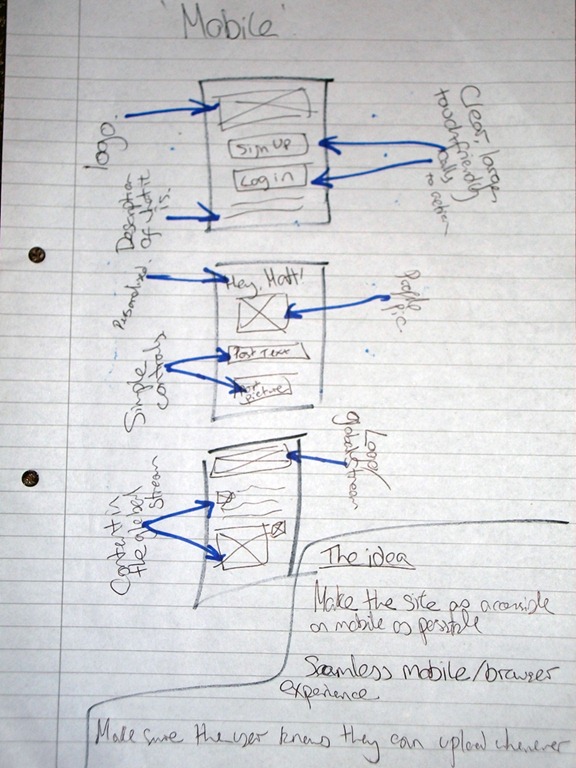 'Mobile'
logo
Sign Up
Log in
Description
of what it
is.
Clear, large,
touch friendly
calls
to action
Personalised
Hey, Matt!
Profile
pic
Simple
controls
Post Text
Post
picture
Local/
global stream
Content in
the global
stream
The idea
Make the site as accessible
on mobile as possible
Seamless mobile/browser
experience
Make sure the user knows they can upload whenever